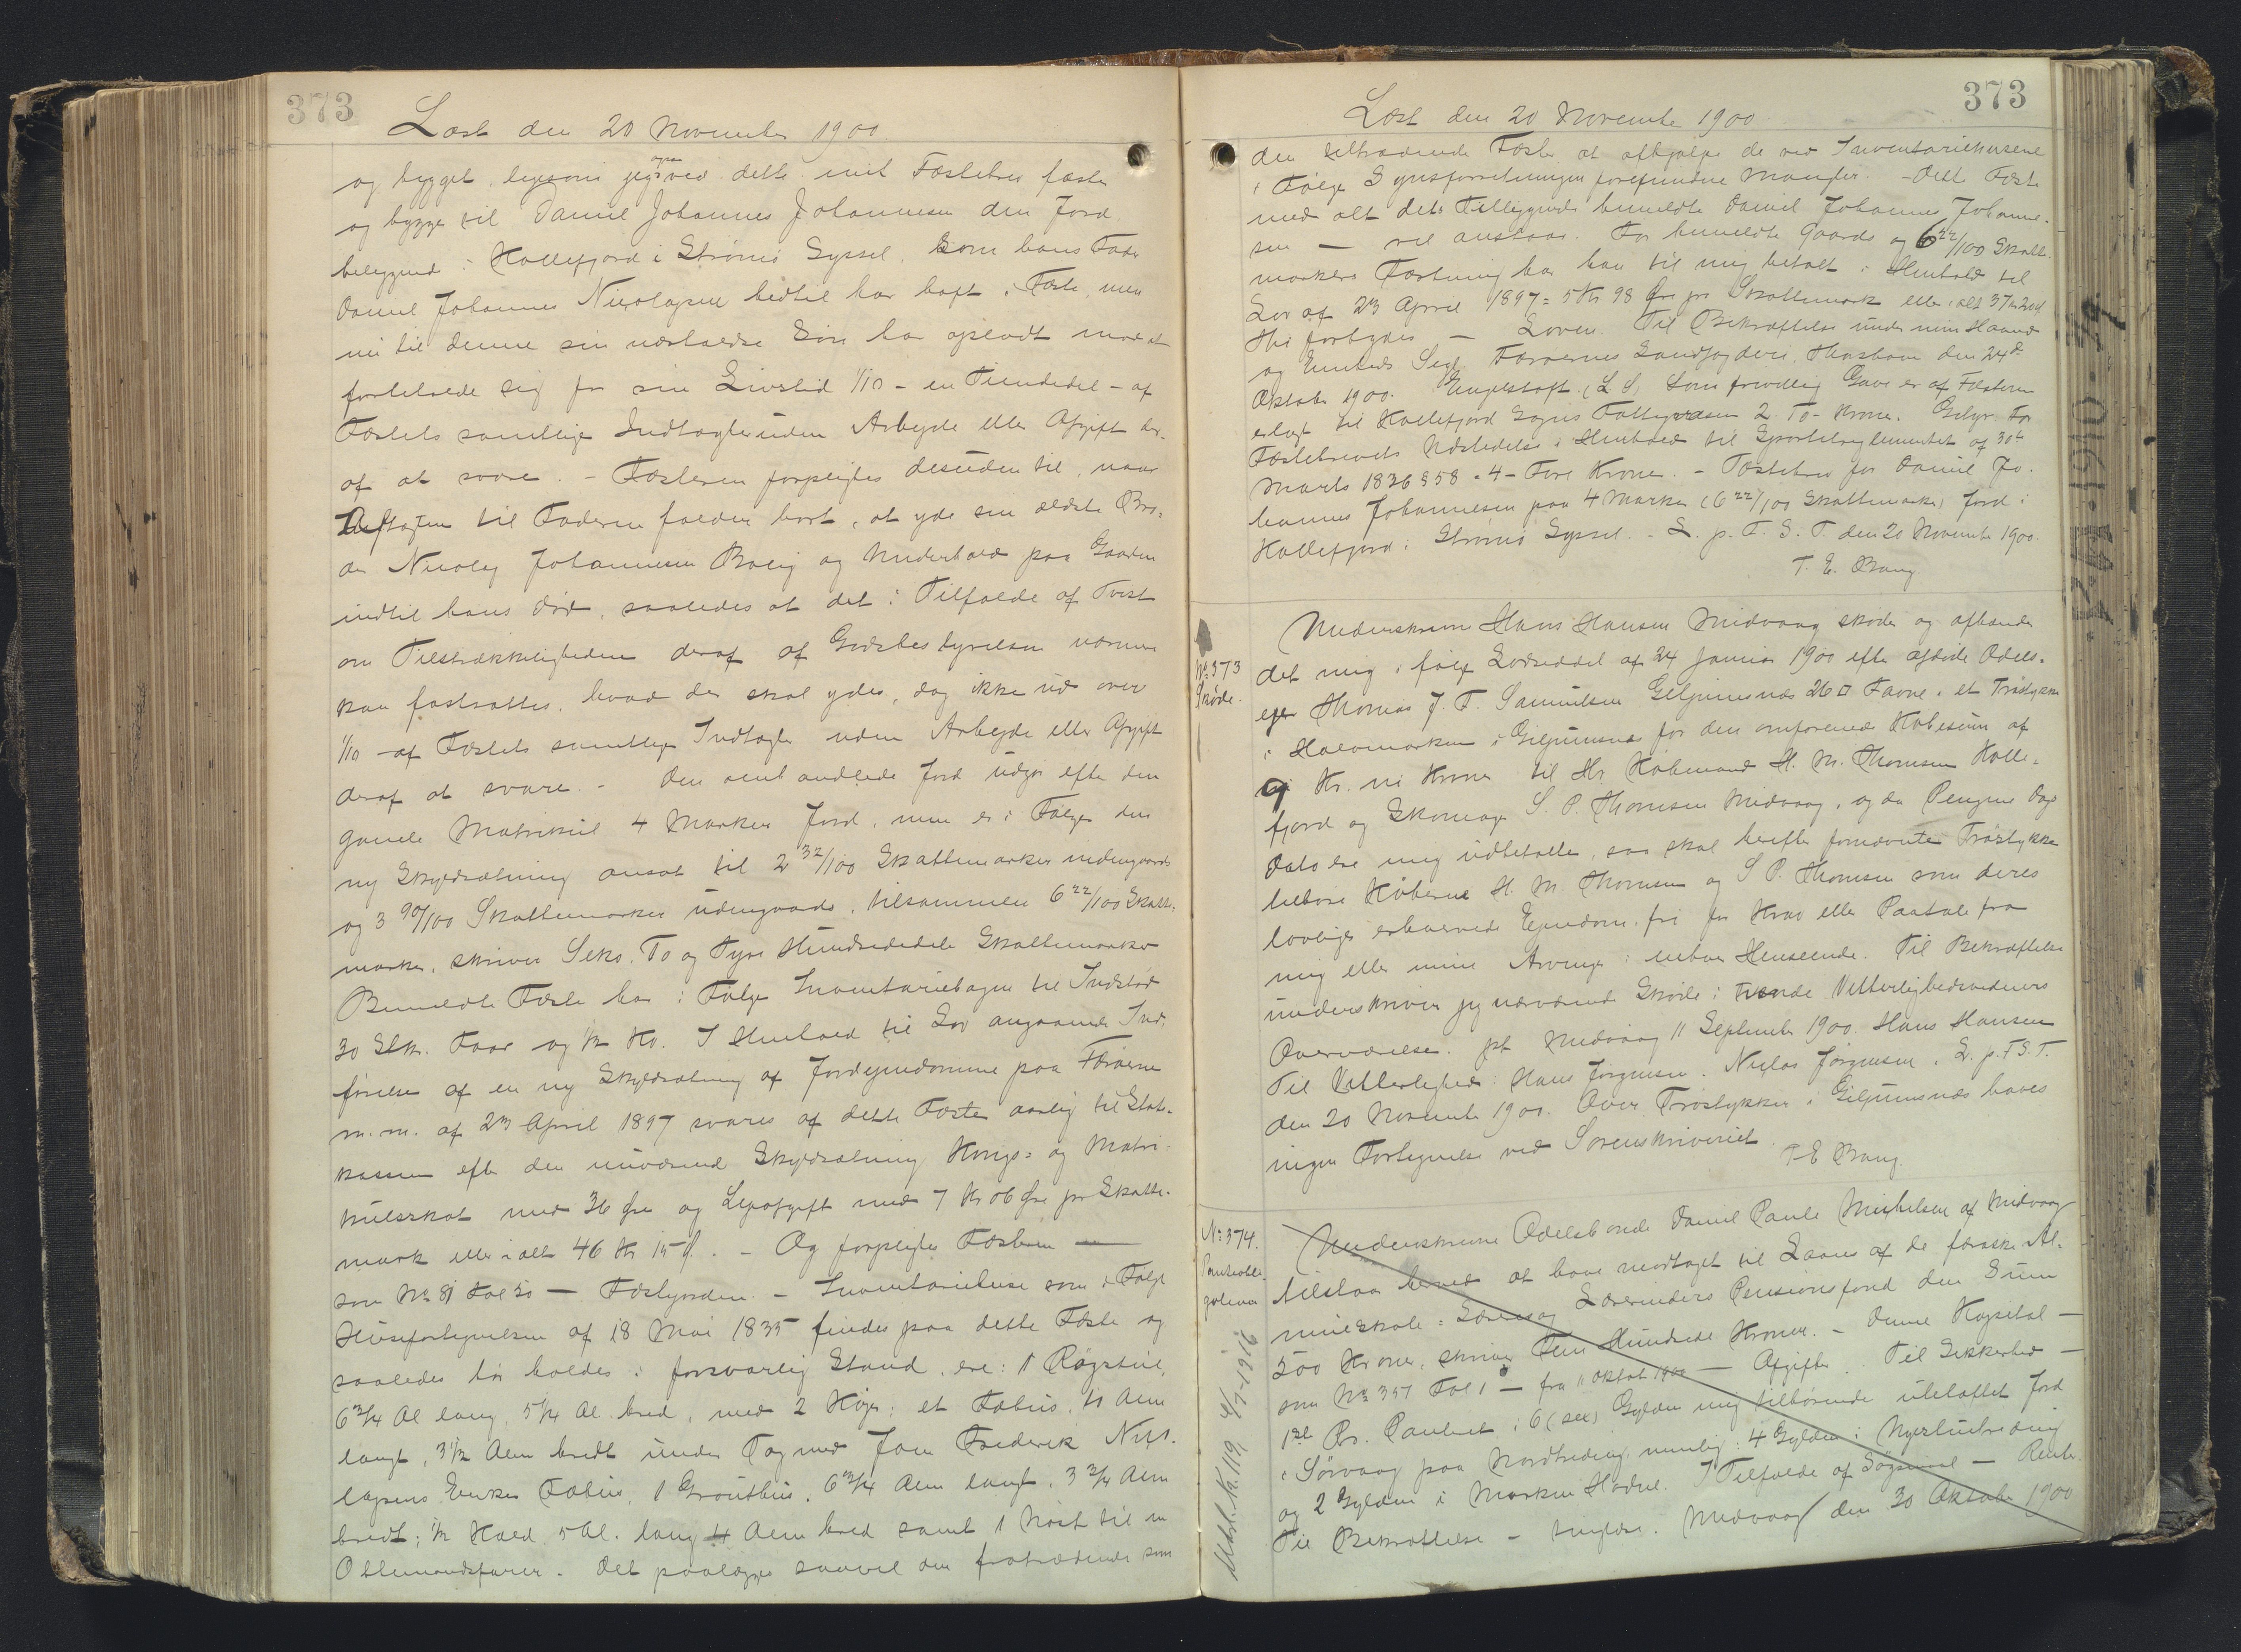 373
Læst den 20 November 1900
og bygget, ligesom jeg og ved dette mit Fæstebrev fæster
og bygger til Daniel Johannes Johannesen den Jord
beliggende i Kollefjord i Strømø Syssel, som hans Fader
Daniel Johannes Nicolajsen hidtil har haft i Fæste, men
nu til denne sin næstældre Søn har opladt mod at
forbeholde sig for sin Livstid 1/10 - en Tiendedel - af
Fæstets samtlige Indtægter uden Arbejde eller Afgift der-
af at svare. - Fæsteren forpligtes desuden til, naar
Aftægten til Faderen falder bort, at yde sin ældste Bro-
der Nicolaj Johannesen Bolig og Underhold paa Gaarden
indtil hans Død, saaledes at det i Tilfælde af Tvist
om Tilstrækkeligheden deraf af Godsbestyrelsen nærmere
kan fastsættes, hvad der skal ydes, dog ikke ud over
1/10 af Fæstets samtlige Indtægter uden Arbejde eller Afgift
deraf at svare. - Den omhandlede Jord udgør efter den
gamle Matrikul 4 Marker Jord, men er i Følge den
ny Skyldsætning ansat til 2 32/100 Skattemarker indengaards
og 3 90/100 Skattemarker udengaards, tilsammen 6 22/100 Skatte-
marker, skriver Seks, To og Tyve Hundrededele Skattemarker
Bemeldte Fæste har i Følge Inventariebogen til Indstød
30 Stk. Faar og 1/2 Ko. I Henhold til Lov angaaende Ind-
førelse af en ny Skyldsætning af Jordejendomme paa Færøerne
m. m. af 23 April 1897 svares af dette Fæste aarlig til Stats-
kassen efter den nuværende Skyldsætning Kongs- og Matri-
kulsskat med 36 Øre og Lejeafgift med 7 Kr 06 Øre pr Skatte-
mark eller i alt 46 Kr 15 Ø. - Og forpligtes Fæsteren —
som № 81 Fol 30 — Fæstejorden. - Inventariehuse som i Følge
Husefortegnelsen af 18 Mai 1835 findes paa dette Fæste og
saaledes bør holdes i forsvarlig Stand, ere: 1 Røgstue,
6 3/4 Al lang, 5 1/4 Al. bred, med 2 Køjer; et Fæhus, 10 Alen
langt, 3 1/2 Alen bredt under Tag med Joen Frederik Nico-
lajsens Enkes Fæhus, 1 Grouthus, 6 3/4 Alen langt, 3 3/4 Alen
bredt; 1/2 Hjald, 5 Al. lang 4 Alen bred samt 1 Nøst til en
Ottemandsfarer. - Det paalægges saavel den fratrædende som
373
Læst den 20 November 1900
den tiltrædende Fæster at afhjælpe de ved Inventariehusene
i Følge Synsforretningen forefundne Mangler. - Dette Fæste
med alt dets Tilliggende bemeldte Daniel Johannes Johanne-
sen — vel anstaar. For bemeldte Gaards og 6 22/100 Skatte-
markers Fæstning har han til mig betalt i Henhold til
Lov af 23 April 1897 = 5 Kr 98 Øre pr Skattemark eller i alt 37 Kr 20 Ø
Thi forbydes — Loven. Til Bekræftelse under min Haand
og Embeds Segl. Færøernes Landfogderi, Thorshavn den 24de
Oktober 1900. Engelstoft. (L S) Som frivillig Gave er af Fæsteren
erlagt til Kollefjord Sogns Fattigvæsen 2 - To - Kroner. Gebyr for
Fæstebrevets Udstedelse i Henhold til Sportelreglementet af 30te
Marts 1836 § 58 - 4 - Fire Kroner. - Fæstebrev for Daniel Jo-
hannes Johannesen paa 4 Marker (6 22/100 Skattemarker) Jord i
Kollefjord i Strømø Syssel. - L. p. F. S. T. den 20 November 1900.
T. E. Bang
№ 373
Skøde.
Underskrevne Hans Hansen Midvaag skøder og afhænder
det mig i følge Lodseddel af 24 Januar 1900 efter afdøde Odels-
ejer Thomas J. F. Samuelsen Giljumsnæs 26 □ Favne i et Trøstykke
i Heimmarken i Giljumsnæs for den omforenede Købesum af
9 Kr. ni Kroner til Hr. Købmand H. M. Thomsen Kolle-
fjord og Skomager S. P. Thomsen Midvaag, og da Pengene Dags
Dato ere mig udbetalte, saa skal herefter fornævnte Trøstykke
tilhøre Køberne H. M. Thomsen og S P. Thomsen som deres
lovlige erhvervede Ejendom, fri for Krav eller Paatale fra
mig eller mine Arvinger i enhver Henseende. Til Bekræftelse
underskriver jeg nærværende Skøde i tvende Vitterlighedsvidners
Overværelse. pt Midvaag 11 September 1900. Hans Hansen
Til Vitterlighed: Hans Jørgensen. Niclas Jørgensen. L. p. F S. T.
den 20 November 1900. Over Trøstykker i Giljumsnæs haves
ingen Fortegnelse ved Sorenskriveriet.
T E Bang.
№ 374.
Panteobli-
gation
Underskrevne Odelsbonde Daniel Paule Michelsen af Midvaag
tilstaar herved at have modtaget til Laans af de færøske Al-
mueskole-Lærere og Lærerinders Pensionsfond den Sum
500 Kroner, skriver Fem Hundrede Kroner. - Denne Kapital —
som № 351 Fol 1 — fra 11 Oktob 1900 — Afgifter. Til Sikkerhed —
1ste Pr. Panteret i 6 (sex) Gylden mig tilhørende uteloftet Jord
i Sørvaag paa Nordtreding nemlig: 4 Gylden i
og 2 Gylden i Marken I Tilfælde af Søgsmaal — Rente
Til Bekræftelse - Midvaag den 30 Oktober 1900